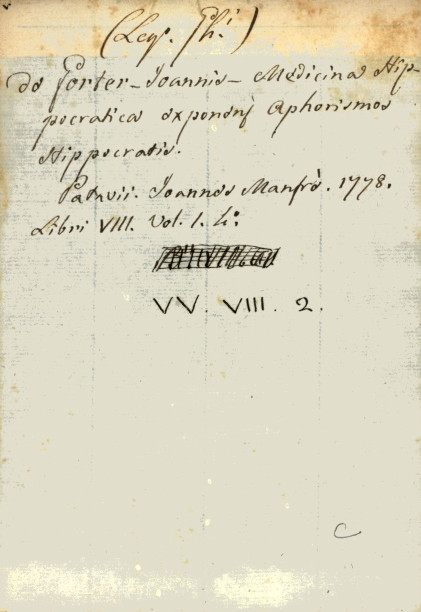 (Leg. Ph.i)
De Gorter - Joannis - Medicina Hip-
pocratica exponens Aphorismos
Hippocratis.
Patavii. Joannes Manfrè. 1778.
Libri VIII. Vol. 1. 4.°
VV. VIII. 2.
C